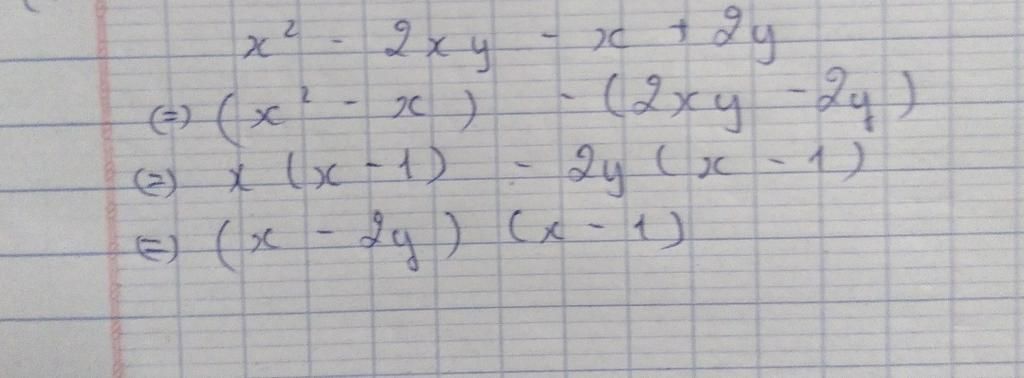 x² - 2xy - x + 2y
(=) (x² - x) - (2xy - 2y)
(=) x (x - 1) - 2y (x - 1)
(=) (x - 2y) (x - 1)